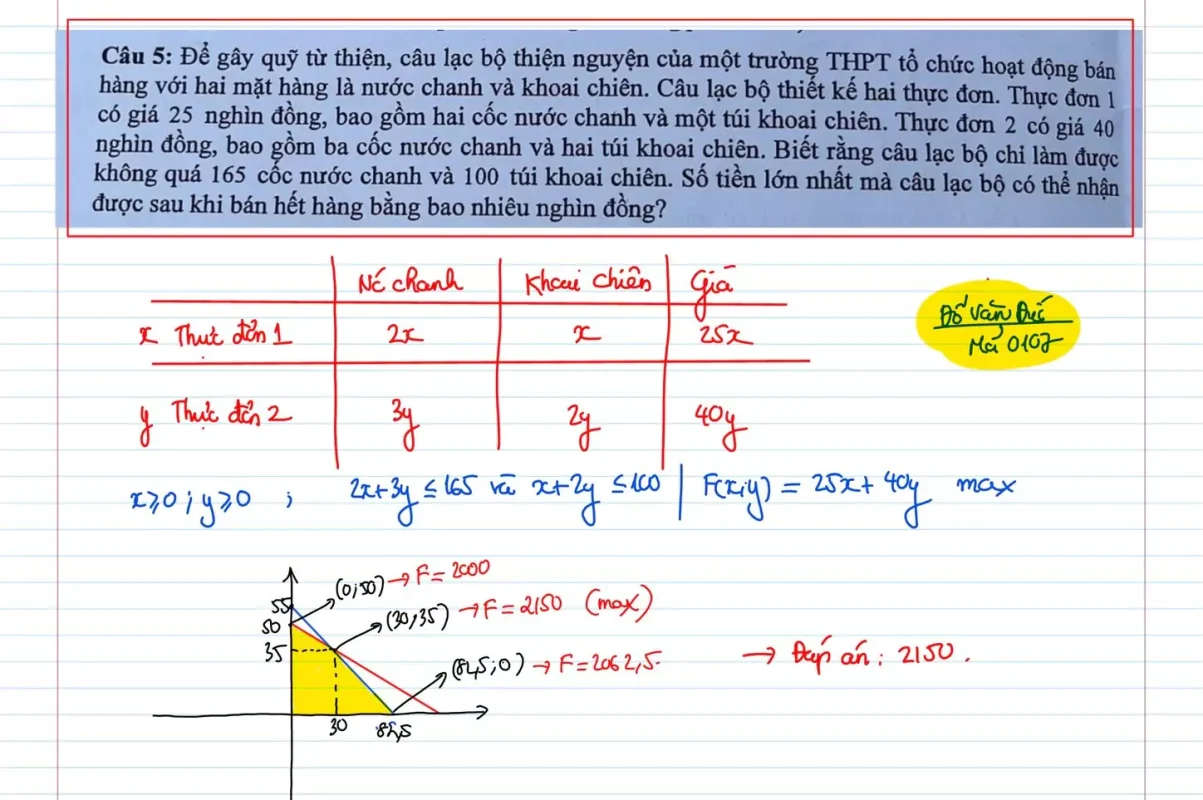 Câu 5: Để gây quỹ từ thiện, câu lạc bộ thiện nguyện của một trường THPT tổ chức hoạt động bán
hàng với hai mặt hàng là nước chanh và khoai chiên. Câu lạc bộ thiết kế hai thực đơn. Thực đơn 1
có giá 25 nghìn đồng, bao gồm hai cốc nước chanh và một túi khoai chiên. Thực đơn 2 có giá 40
nghìn đồng, bao gồm ba cốc nước chanh và hai túi khoai chiên. Biết rằng câu lạc bộ chỉ làm được
không quá 165 cốc nước chanh và 100 túi khoai chiên. Số tiền lớn nhất mà câu lạc bộ có thể nhận
được sau khi bán hết hàng bằng bao nhiêu nghìn đồng?
Nc chanh Khoai chiên Giá
x Thực đơn 1 2x x 25x
Đỗ Văn Đức
Mã 0107
y Thực đơn 2 3y 2y 40y
x ≥ 0 ; y ≥ 0 ; 2x+3y ≤ 165 và x+2y ≤ 100 | F(x;y) = 25x + 40y max
(0;50) → F = 2000
55
50
(30;35) → F = 2150 (max)
35
(82,5;0) → F = 2062,5
→ Đáp án : 2150.
30 82,5